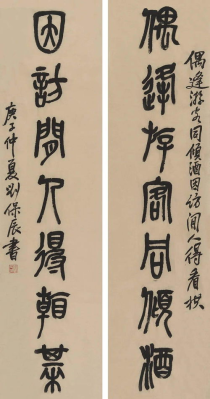 偶逢游客同傾酒因访闲人得看棋
偶逢游客同傾酒
因訪閒人得看棊
庚子仲夏刘保辰書